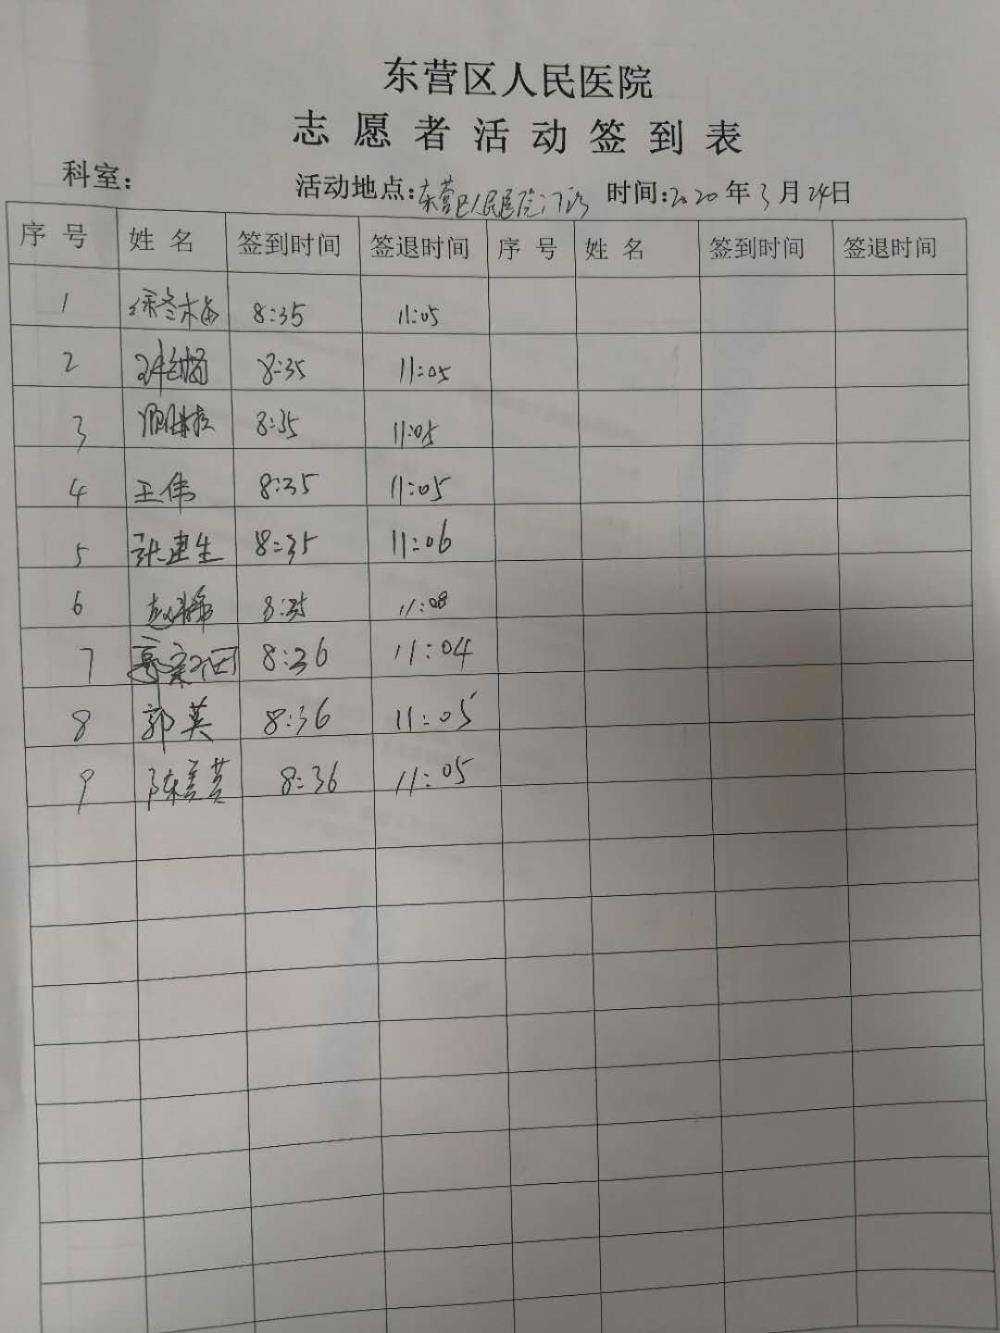 东营区人民医院
志愿者活动签到表
科室： 活动地点：东营区人民医院门诊 时间：2020年3月24日
序号 姓名 签到时间 签退时间 序号 姓名 签到时间 签退时间
1 徐冬梅 8:35 11:05
2 8:35 11:05
3 8:35 11:05
4 王伟 8:35 11:05
5 张建生 8:35 11:06
6 8:35 11:08
7 8:36 11:04
8 郭英 8:36 11:05
9 陈美英 8:36 11:05